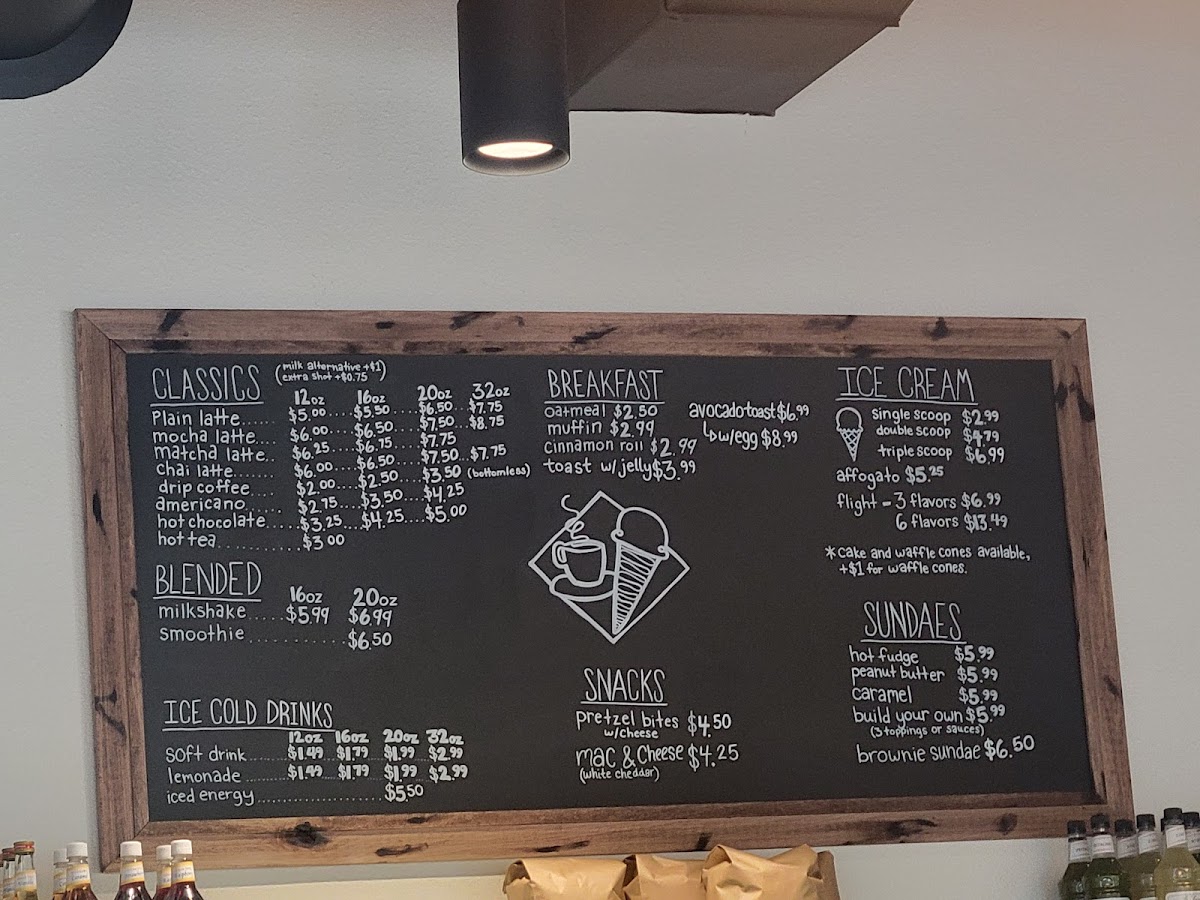 CLASSICS (milk alternative +$1)
(extra shot +$0.75)
12oz 16oz 20oz 32oz
Plain latte..... $5.00.... $5.50.... $6.50... $7.75
mocha latte.... $6.00.... $6.50.... $7.50... $8.75
matcha latte.. $6.25.... $6.75.... $7.75
chai latte..... $6.00.... $6.50.... $7.50.. $7.75
drip coffee.... $2.00.... $2.50.... $3.50 (bottomless)
americano..... $2.75.... $3.50.... $4.25
hot chocolate.... $3.25.... $4.25.... $5.00
hot tea........... $3.00
BLENDED
16oz 20oz
milkshake..... $5.99 $6.99
smoothie............. $6.50
ICE COLD DRINKS
12oz 16oz 20oz 32oz
soft drink..... $1.49 $1.79 $1.99 $2.99
lemonade..... $1.49 $1.79 $1.99 $2.99
iced energy.................. $5.50
BREAKFAST
oatmeal $2.50
muffin $2.99
cinnamon roll $2.99
toast w/jelly $3.99
avocado toast $6.99
↳ w/egg $8.99
SNACKS
pretzel bites $4.50
w/cheese
mac & Cheese $4.25
(white cheddar)
ICE CREAM
single scoop $2.99
double scoop $4.79
triple scoop $6.99
affogato $5.25
flight - 3 flavors $6.99
6 flavors $13.49
*cake and waffle cones available,
+$1 for waffle cones.
SUNDAES
hot fudge $5.99
peanut butter $5.99
caramel $5.99
build your own $5.99
(3 toppings or sauces)
brownie sundae $6.50